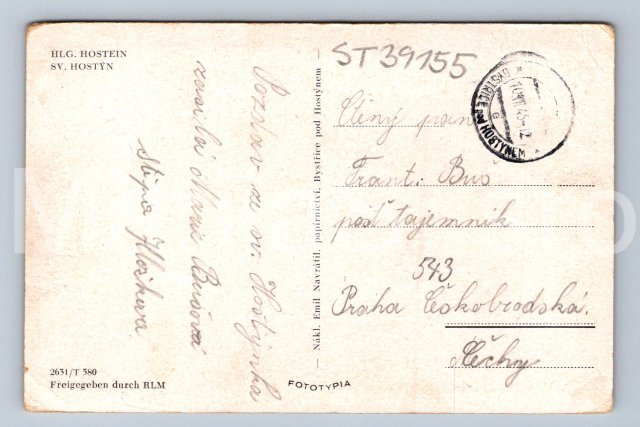 HLG. HOSTEIN
SV. HOSTÝN
Pozdrav ze sv. Hostýnka
zasílá Marie Bušová
Nákl. Emil Navrátil, papírnictví, Bystřice pod Hostýnem
ST39155
BYSTŘICE pod HOSTÝNEM
Ctěný pan
Frant. Buš
pošt tajemník
543
Praha Českobrodská.
Čechy
2631/T 380
Freigegeben durch RLM
FOTOTYPIA